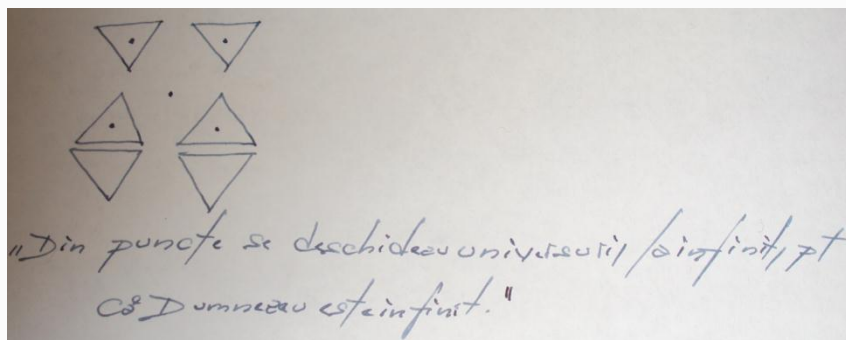 „Din puncte se deschideau universuri, la infinit, pt
că Dumnezeu este infinit."